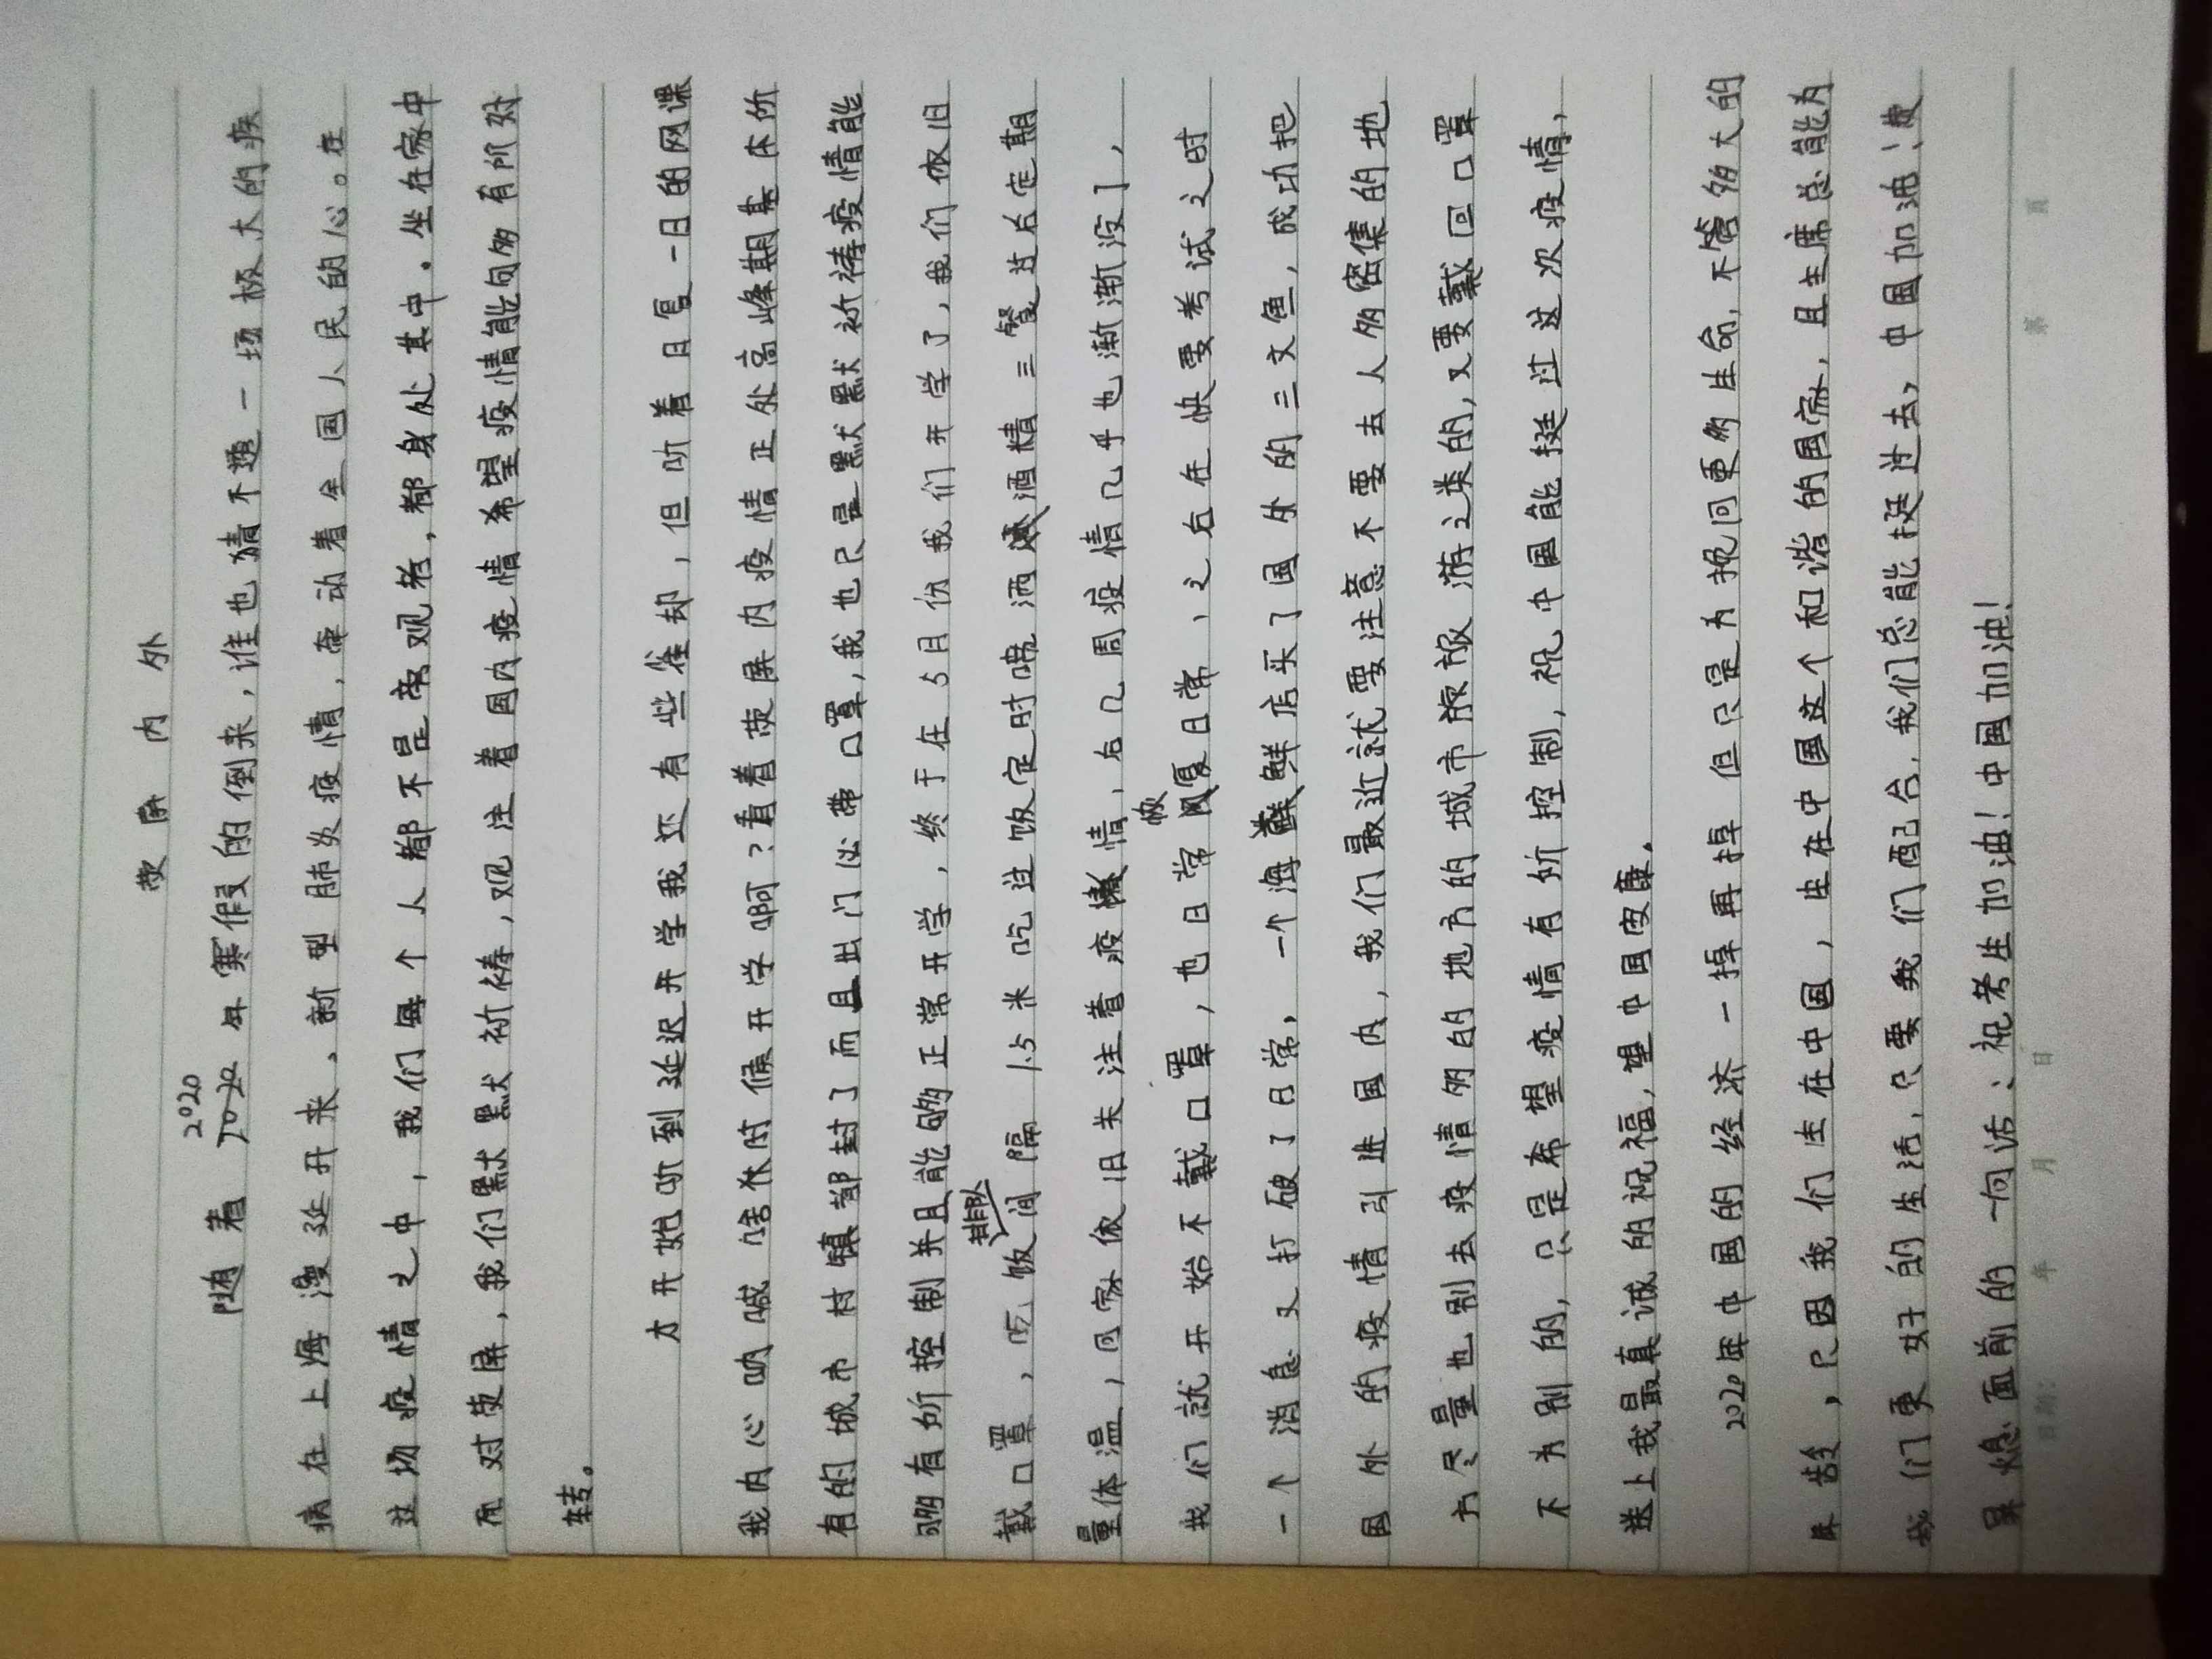 荧屏内外
2020
随着 年寒假的倒来，谁也猜不透一场极大的疾
病在上海漫延开来，新型肺炎疫情，牵动着全国人民的心。在
这场疫情之中，我们每个人都不是旁观者，都身处其中。坐在家中
面对荧屏，我们默默祈祷，观注着国内疫情希望疫情能够有所好
转。
才开始听到延迟开学我还有些雀却，但随着日复一日的网课
我内心呐喊啥休时候开学啊？看着荧屏内疫情正处高峰期基本所
有的城市村镇都封了而且出门必带口罩，我也只是默默祈祷疫情能
够有所控制并且能够正常开学，终于在5月份我们开学了，我们依旧
排队
戴口罩，吃饭间隔1.5米吃过饭定时喷洒酒精三餐过后定期
量体温，回家依旧关注着疫情，右几周疫情几乎也渐渐没了，
恢
我们就开始不戴口罩，也日常复日常，之右在快要考试之时
一个消息又打破了日常，一个海鲜店买了国外的三文鱼，成功把
国外的疫情引进国内，我们最近就要注意不要去人多密集的地
方尽量也别去疫情多的地方的城市旅游之类的，又要戴回口罩
不为别的，只是希望疫情有所控制，祝中国能挺过这次疫情，
送上我最真诚的祝福，望中国安康。
2020年中国的经济一掉再掉但只是为挽回更多生命，不管多大的
库款，只因我们生在中国，生在中国这个和谐的国家，且主席总能为
我们更好的生活，只要我们配合，我们总能挺过去，中国加油！荧
屏熄面前的一句话：祝考生加油！中国加油！
日期： 年 月 日 第 页